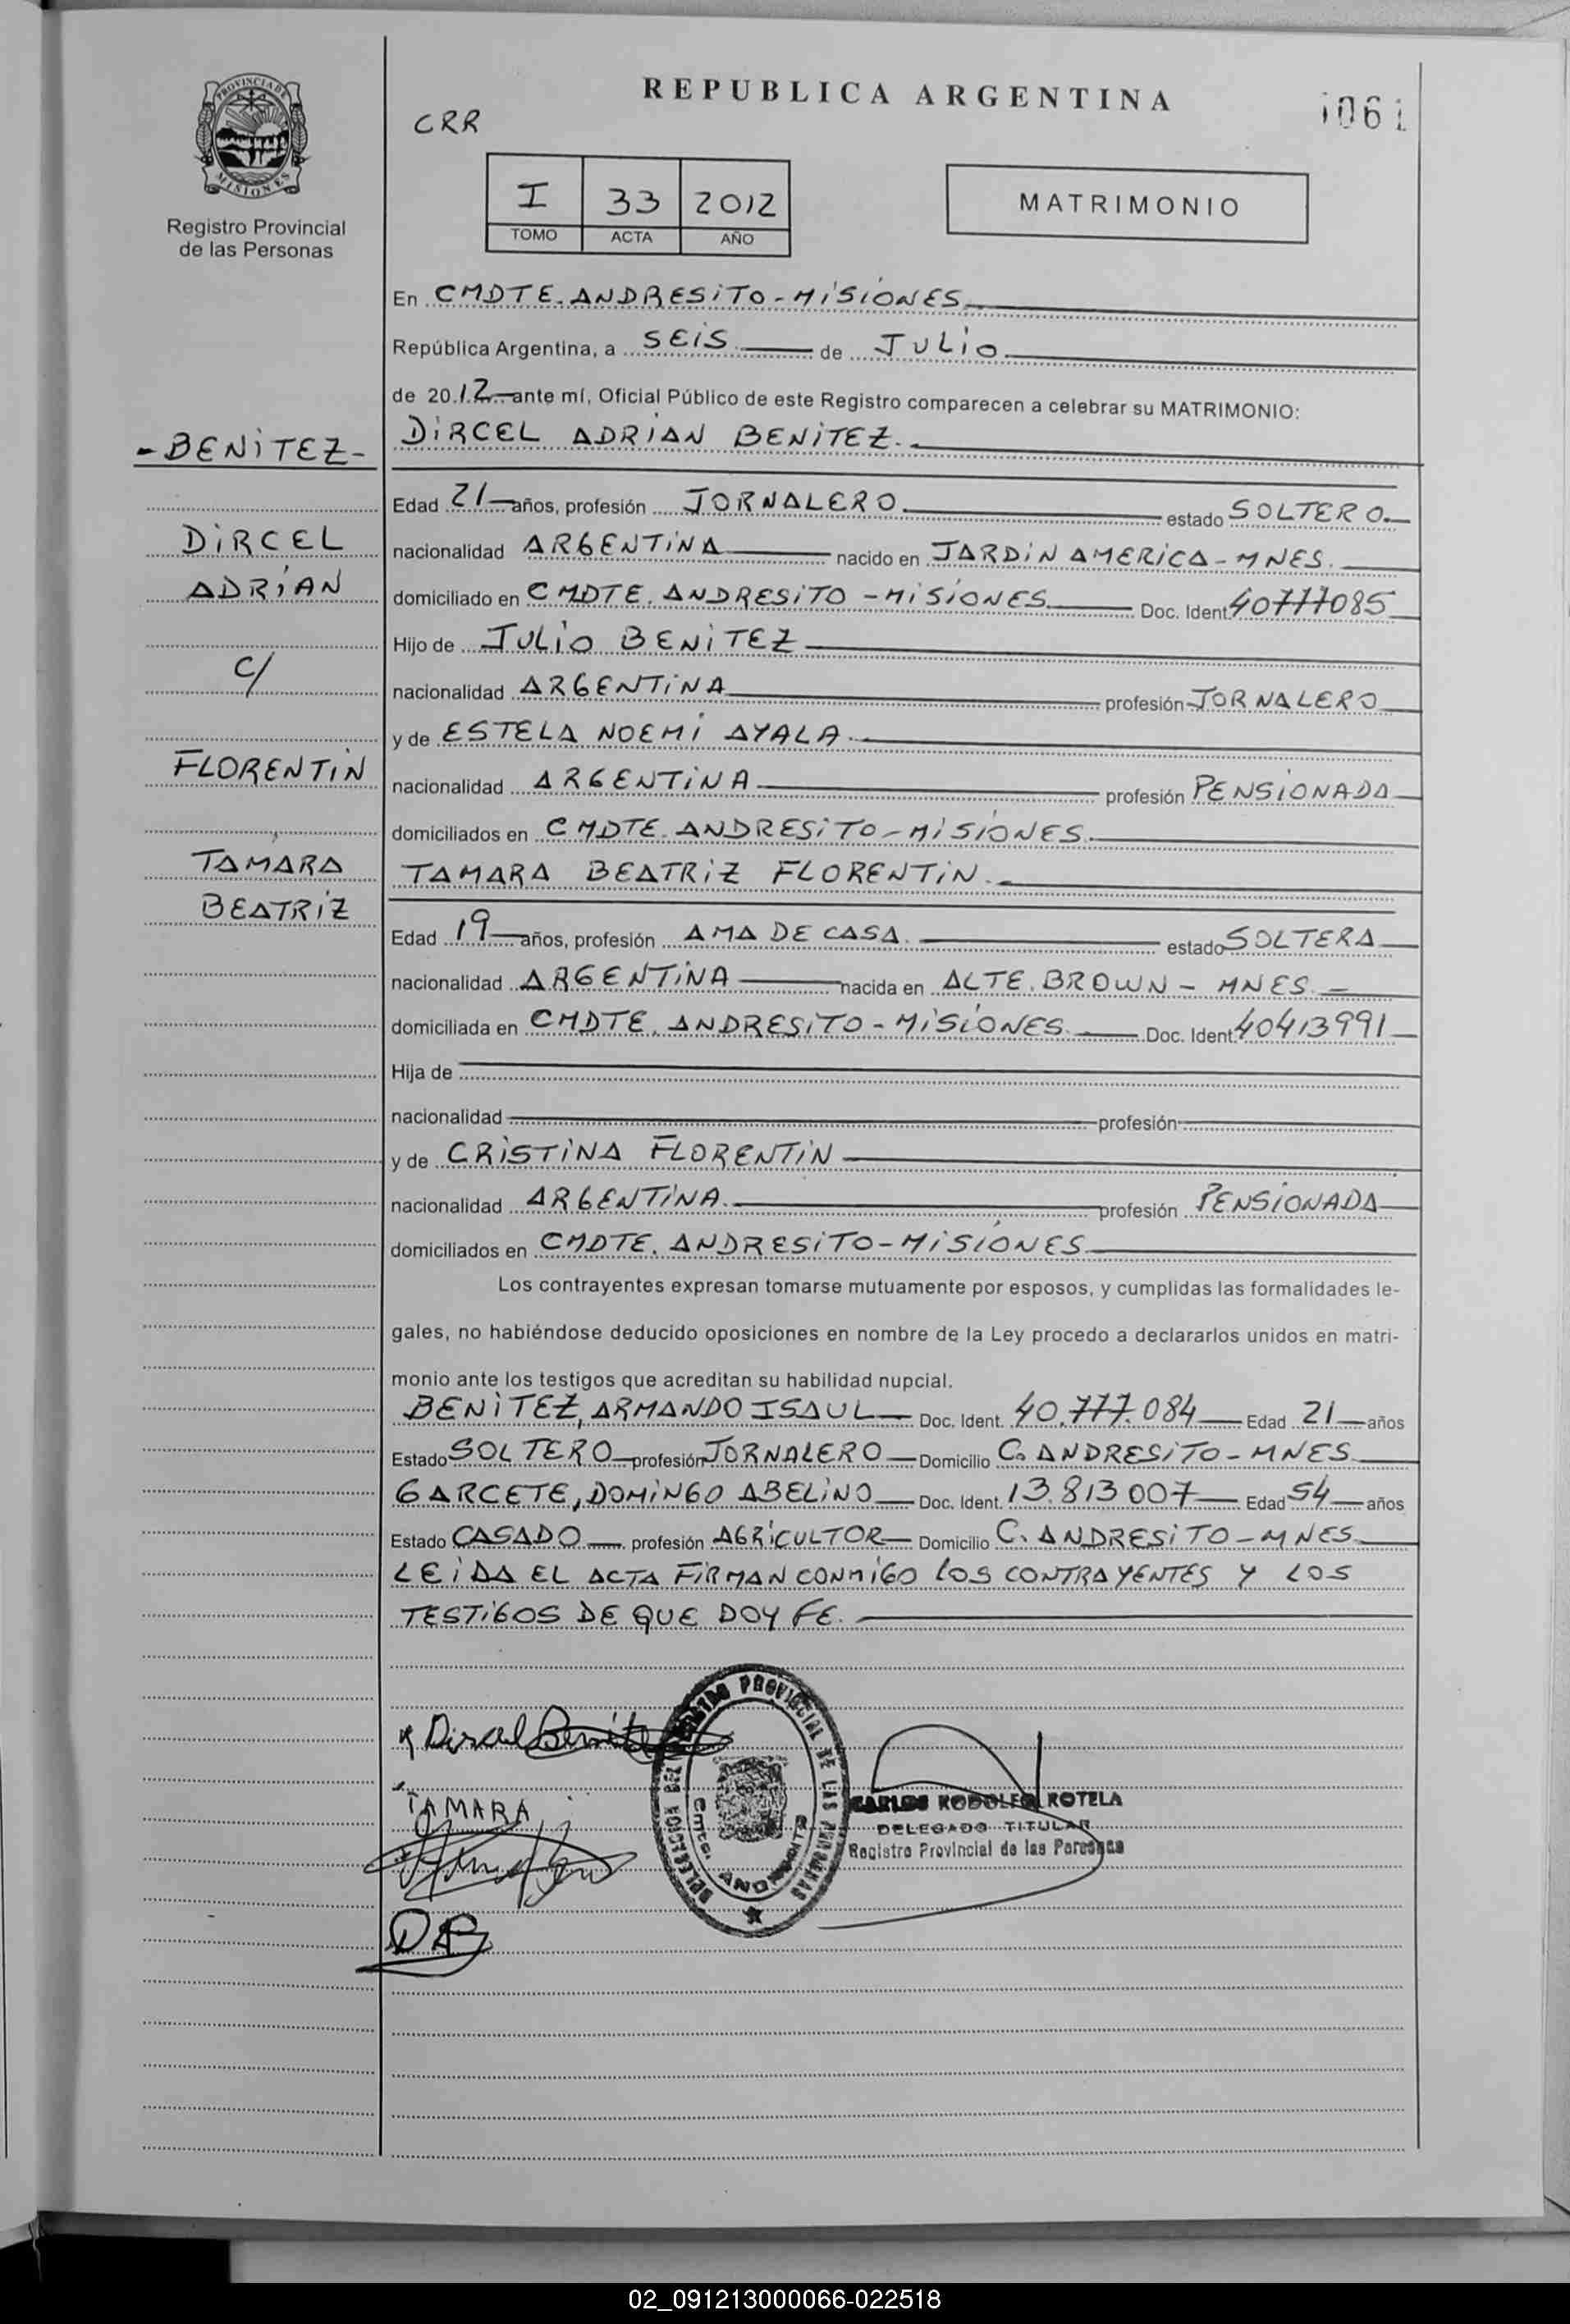 PROVINCIA DE
MISIONES
Registro Provincial
de las Personas
REPUBLICA ARGENTINA
1061
CRR
I 33 2012
TOMO ACTA AÑO
MATRIMONIO
En CMDTE. ANDRESITO - MISIONES
República Argentina, a SEIS de JULIO
de 2012 ante mí, Oficial Público de este Registro comparecen a celebrar su MATRIMONIO:
- BENITEZ -
DIRCEL ADRIAN BENITEZ.
Edad 21 años, profesión JORNALERO estado SOLTERO.
DIRCEL
nacionalidad ARGENTINA nacido en JARDIN AMERICA - MNES.
ADRIAN
domiciliado en CMDTE. ANDRESITO - MISIONES Doc. Ident. 40777085
Hijo de JULIO BENITEZ
C/
nacionalidad ARGENTINA profesión JORNALERO
y de ESTELA NOEMI AYALA.
FLORENTIN
nacionalidad ARGENTINA profesión PENSIONADA
domiciliados en CMDTE. ANDRESITO - MISIONES.
TAMARA
TAMARA BEATRIZ FLORENTIN.
BEATRIZ
Edad 19 años, profesión AMA DE CASA. estado SOLTERA
nacionalidad ARGENTINA nacida en ALTE. BROWN - MNES.
domiciliada en CMDTE. ANDRESITO - MISIONES. Doc. Ident. 40413991
Hija de
nacionalidad profesión
y de CRISTINA FLORENTIN
nacionalidad ARGENTINA. profesión PENSIONADA
domiciliados en CMDTE. ANDRESITO - MISIONES
Los contrayentes expresan tomarse mutuamente por esposos, y cumplidas las formalidades le-
gales, no habiéndose deducido oposiciones en nombre de la Ley procedo a declararlos unidos en matri-
monio ante los testigos que acreditan su habilidad nupcial.
BENITEZ, ARMANDO ISAUL Doc. Ident. 40.777.084 Edad 21 años
Estado SOLTERO profesión JORNALERO Domicilio C. ANDRESITO - MNES.
GARCETE, DOMINGO ABELINO Doc. Ident. 13.813007 Edad 54 años
Estado CASADO profesión AGRICULTOR Domicilio C. ANDRESITO - MNES.
LEIDA EL ACTA FIRMAN CONMIGO LOS CONTRAYENTES Y LOS
TESTIGOS DE QUE DOY FE.
Dircel Benitez
DELEGACION DEL REGISTRO PROVINCIAL DE LAS PERSONAS
Cmte. ANDRESITO
TAMARA
CARLOS RODOLFO ROTELA
DELEGADO TITULAR
Registro Provincial de las Personas
DB
02_091213000066-022518